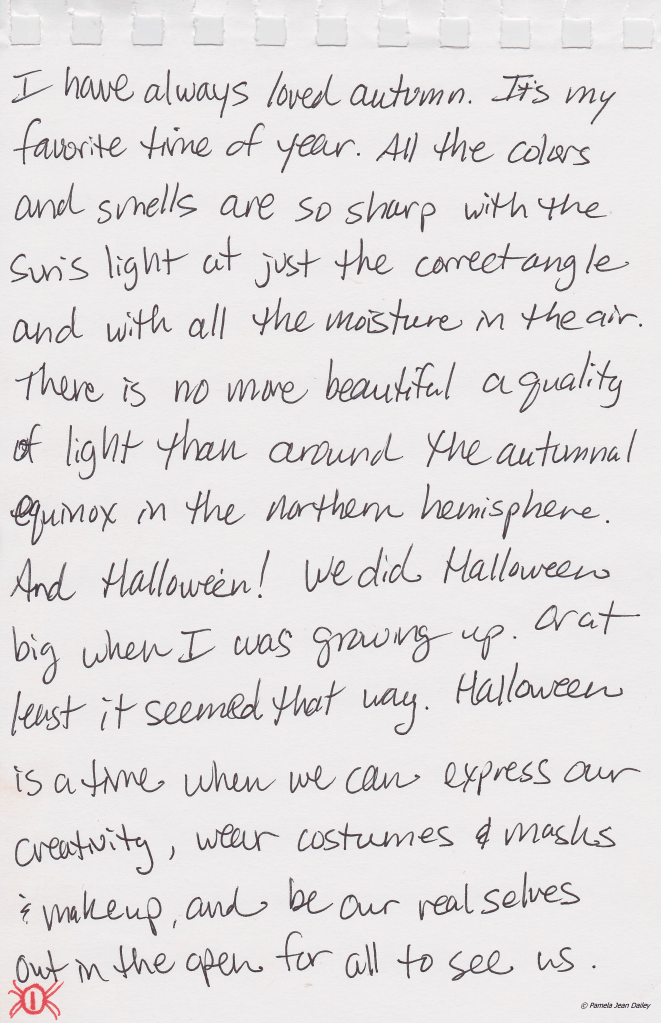 I have always loved autumn. It's my
favorite time of year. All the colors
and smells are so sharp with the
sun's light at just the correct angle
and with all the moisture in the air.
There is no more beautiful a quality
of light than around the autumnal
equinox in the northern hemisphere.
And Halloween! We did Halloween
big when I was growing up. Or at
least it seemed that way. Halloween
is a time when we can express our
creativity, wear costumes & masks
& makeup, and be our real selves
out in the open for all to see us.
1
© Pamela Jean Dailey